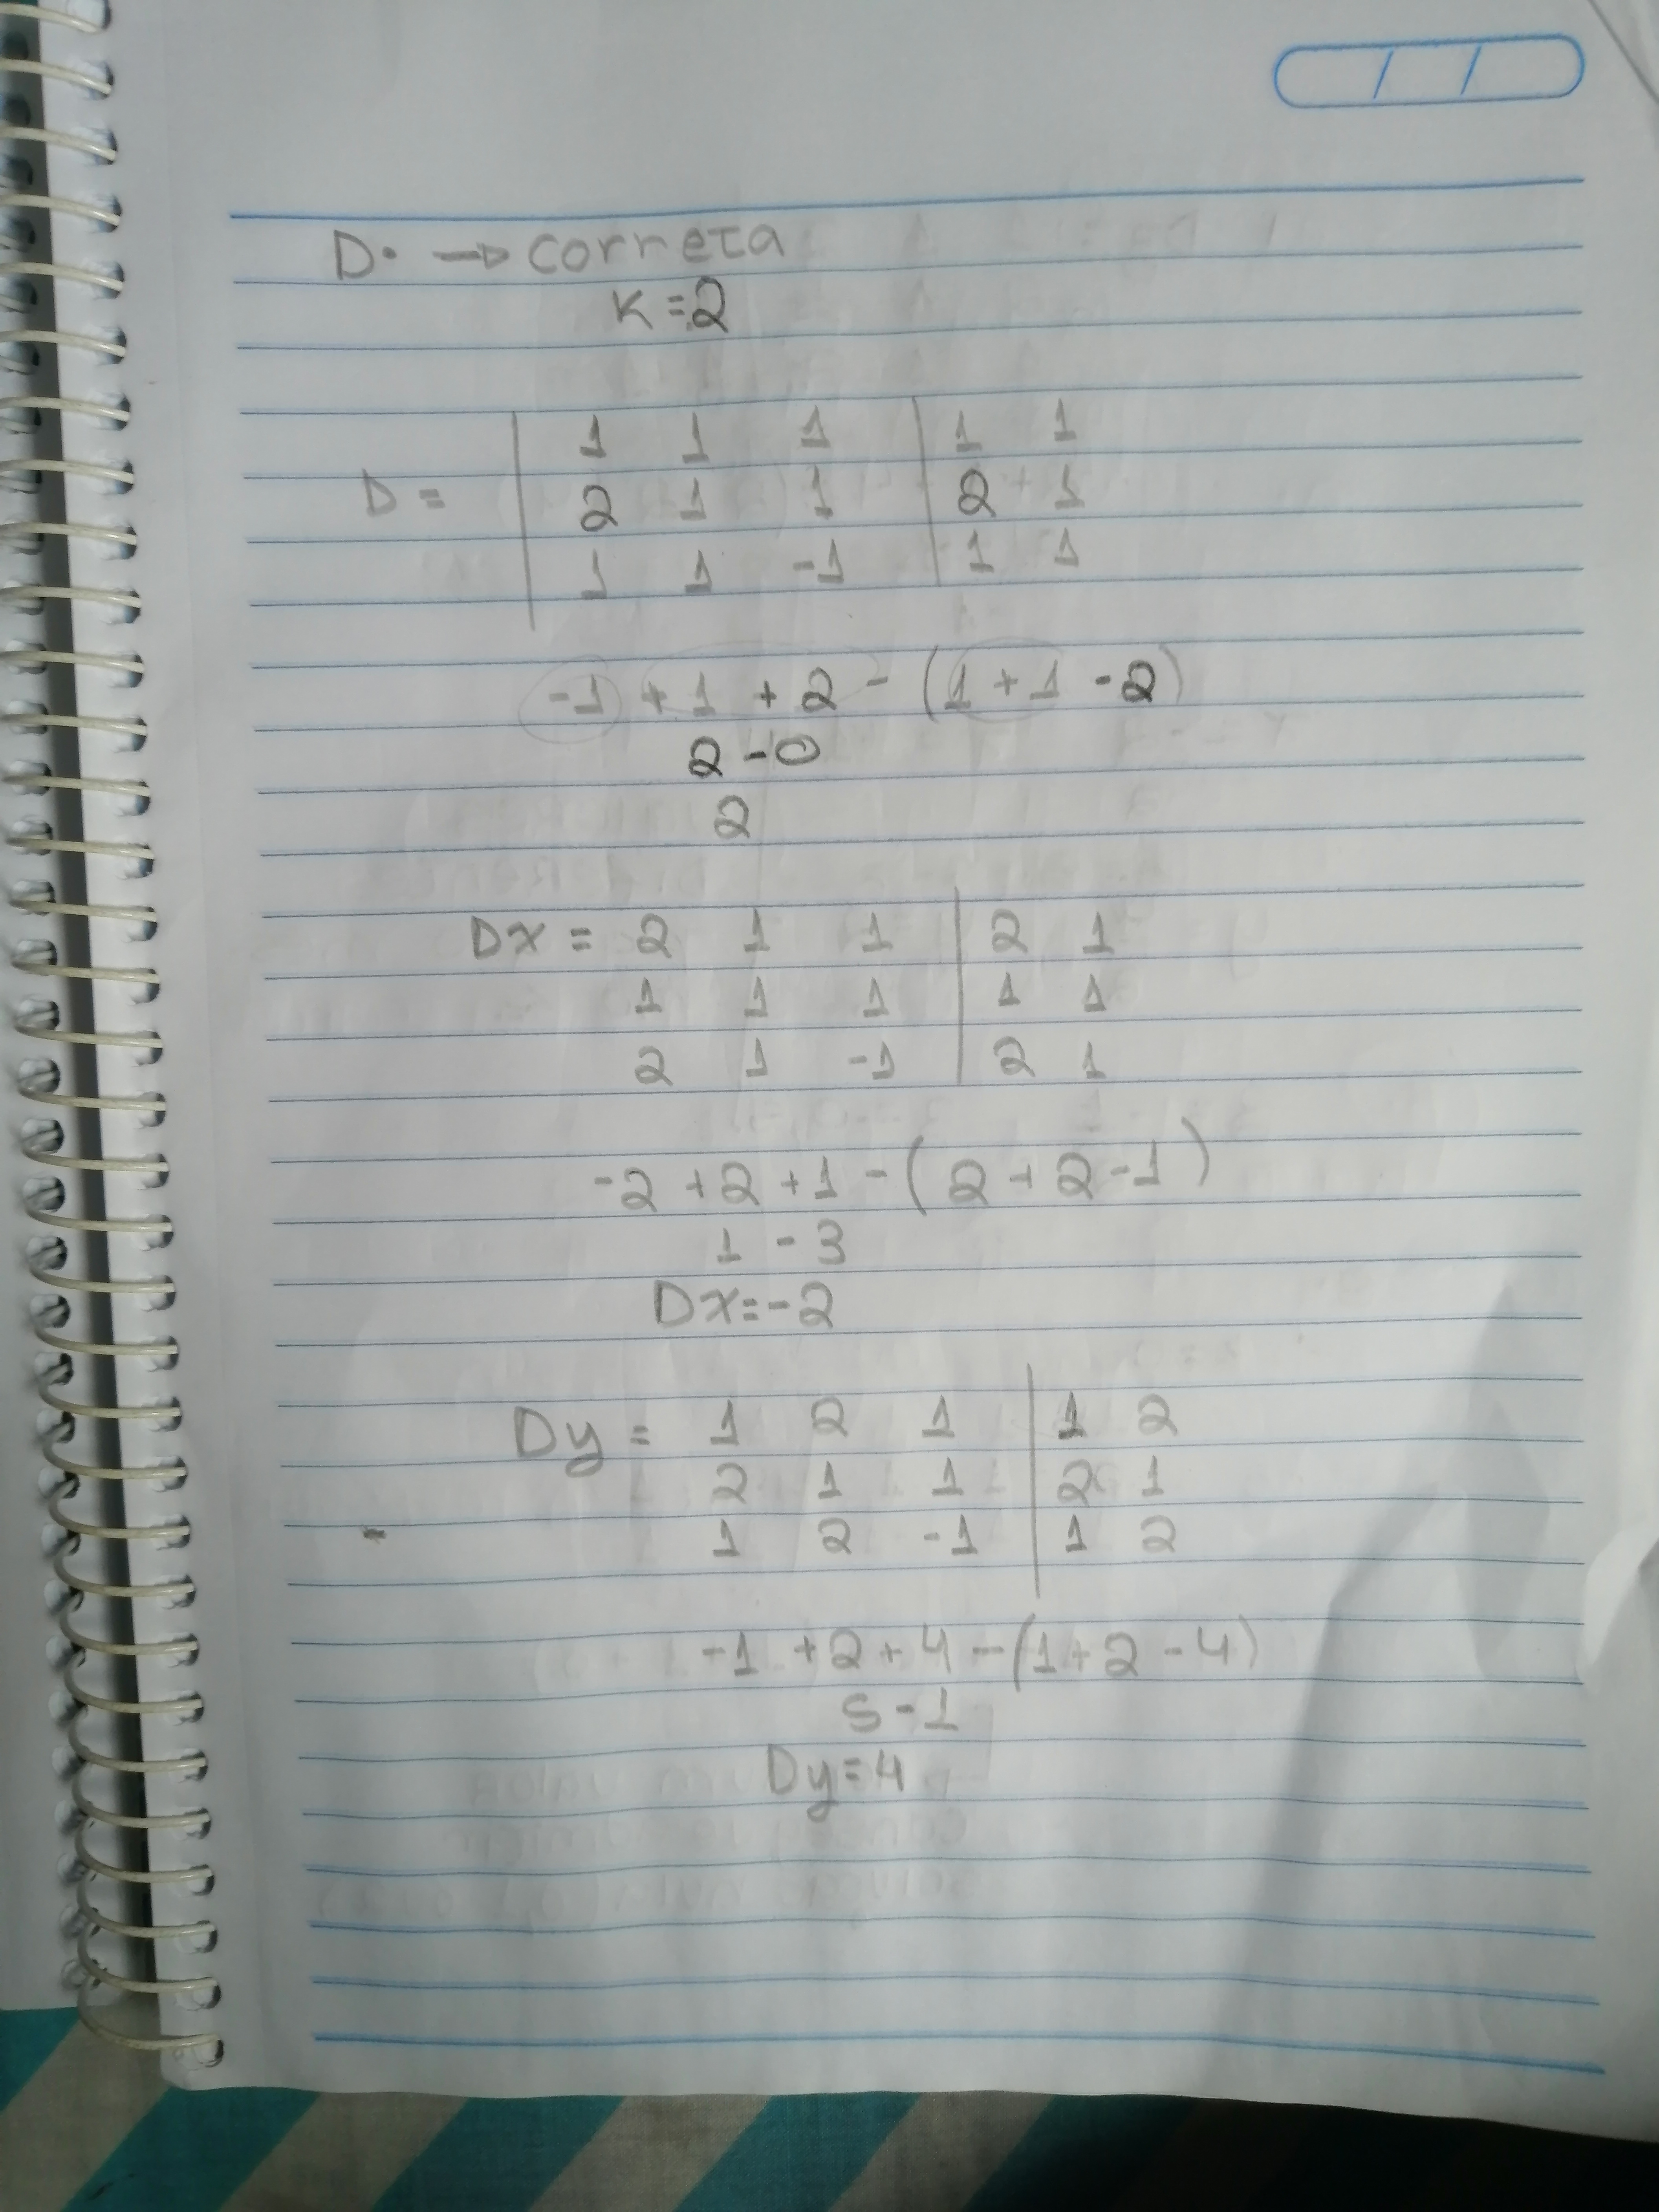 D. → correta
K = 2
1 1 1 | 1 1
D = | 2 1 1 | 2 1
1 1 -1 | 1 1
-1 + 1 + 2 - (1 + 1 - 2)
2 - 0
2
Dx = 2 1 1 | 2 1
1 1 1 | 1 1
2 1 -1 | 2 1
-2 + 2 + 1 - (2 + 2 - 1)
1 - 3
Dx = -2
Dy = 1 2 1 | 1 2
2 1 1 | 2 1
1 2 -1 | 1 2
-1 + 2 + 4 - (1 + 2 - 4)
5 - 1
Dy = 4